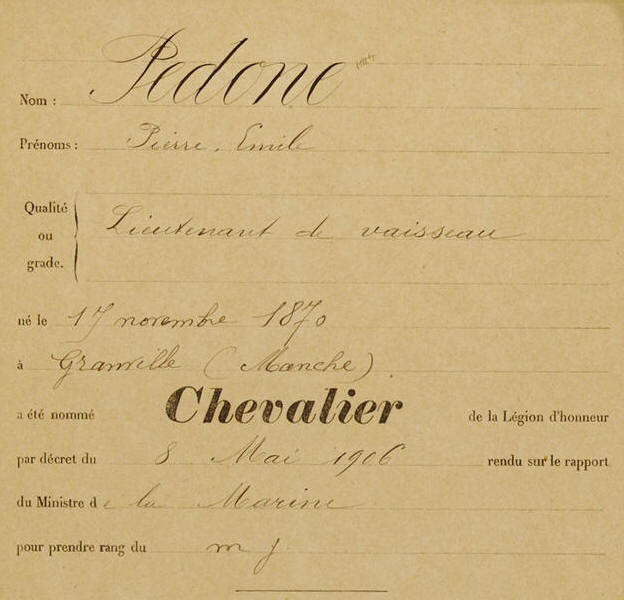 Nom : Pedone
Prénoms : Pierre, Emile
Qualité
ou Lieutenant de vaisseau
grade.
né le 17 novembre 1870
à Granville (Manche)
a été nommé Chevalier de la Légion d'honneur
par décret du 8 Mai 1906 rendu sur le rapport
du Ministre de la Marine
pour prendre rang du m j